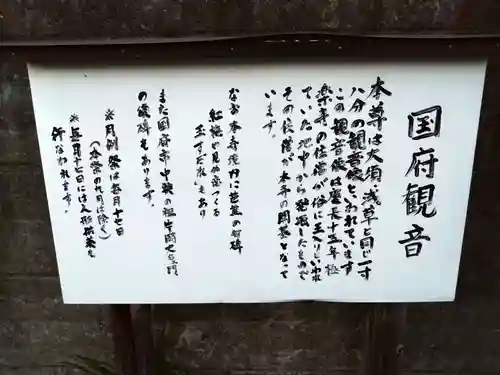 国府観音
本尊は大須、浅草と同じ一寸
八分の観音像といわれています
この観音像は慶長十五年極
楽寺の住僧が俗に玉入りといわれ
ていた地中から発掘したもので
その住僧が本寺の開基となって
います。
なお本寺境内に芭蕉の句碑
紅梅や見ぬ恋つくる
玉すだれ」もあり
また国府市中興の祖中岡
の碑もあります。
※月例祭は毎月十七日
(本祭の九月は除く)
※毎月十七日には人形供養を
行なわれます。